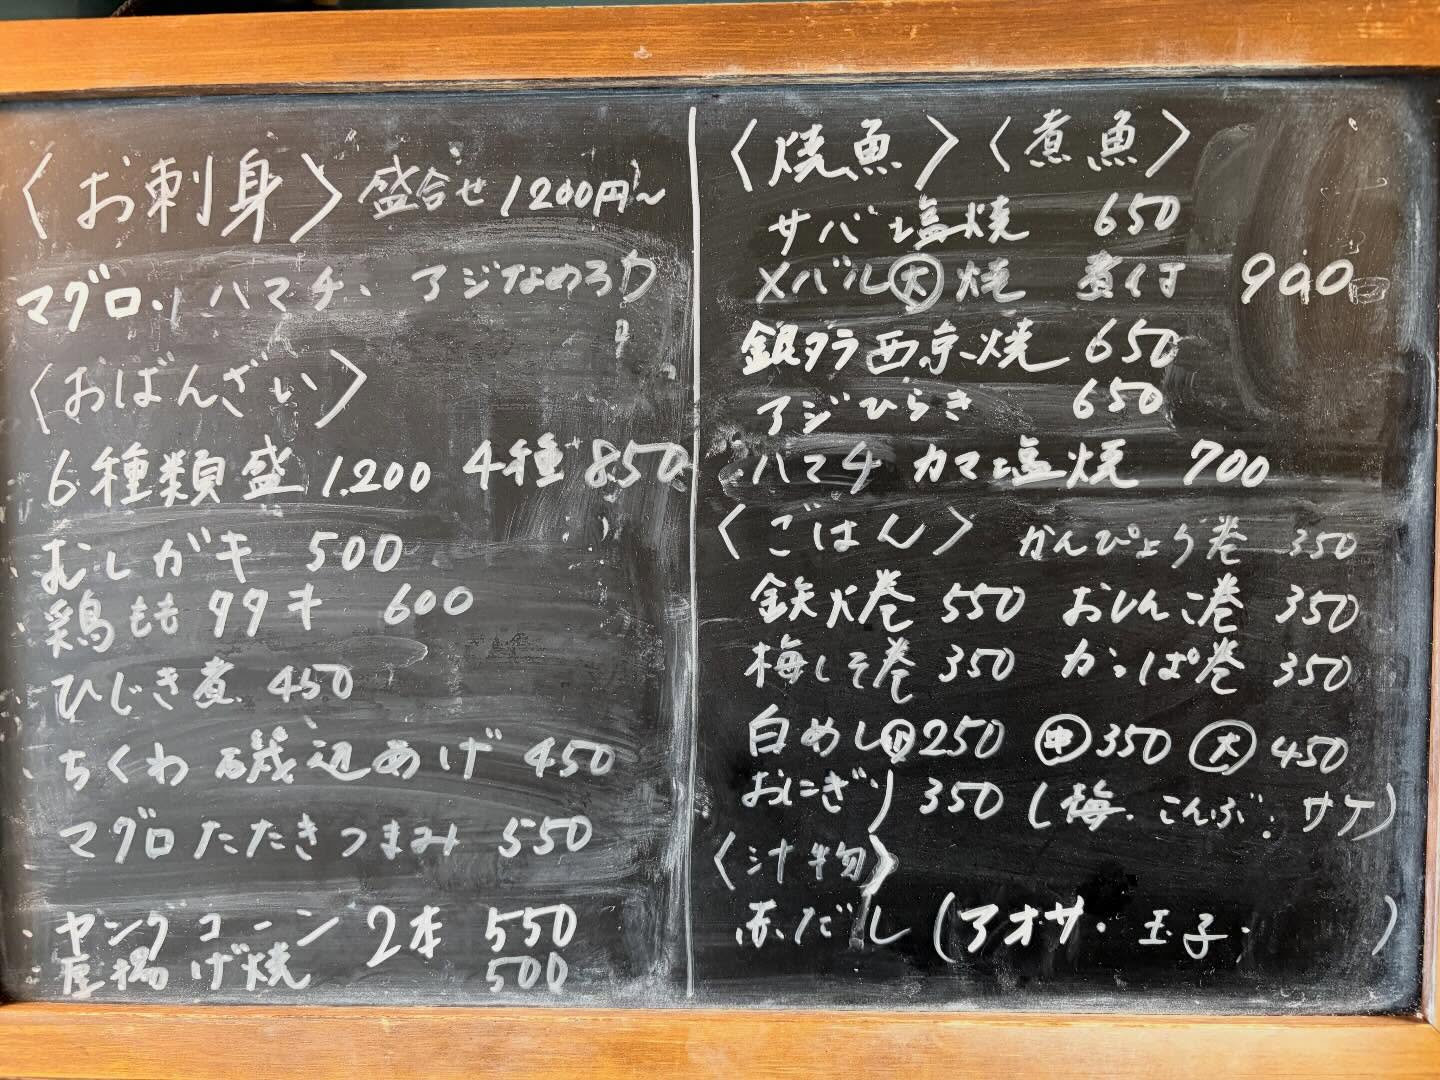 〈お刺身〉盛合せ 1200円~
マグロ、ハマチ、アジなめろう
〈おばんざい〉
6種類盛 1.200 4種 850
むしガキ 500
鶏もも タタキ 600
ひじき煮 450
ちくわ磯辺あげ 450
マグロたたきつまみ 550
ヤングコーン 2本 550
厚揚げ焼 500
〈焼魚〉〈煮魚〉
サバ塩焼 650
メバル大焼 煮付 900
銀ダラ西京焼 650
アジひらき 650
ハマチ カマ塩焼 700
〈ごはん〉 かんぴょう巻 350
鉄火巻 550 おしんこ巻 350
梅しそ巻 350 かっぱ巻 350
白めし小250 中350 大450
おにぎり 350 (梅・こんぶ・サケ)
〈汁物〉
赤だし (アオサ・玉子・ )